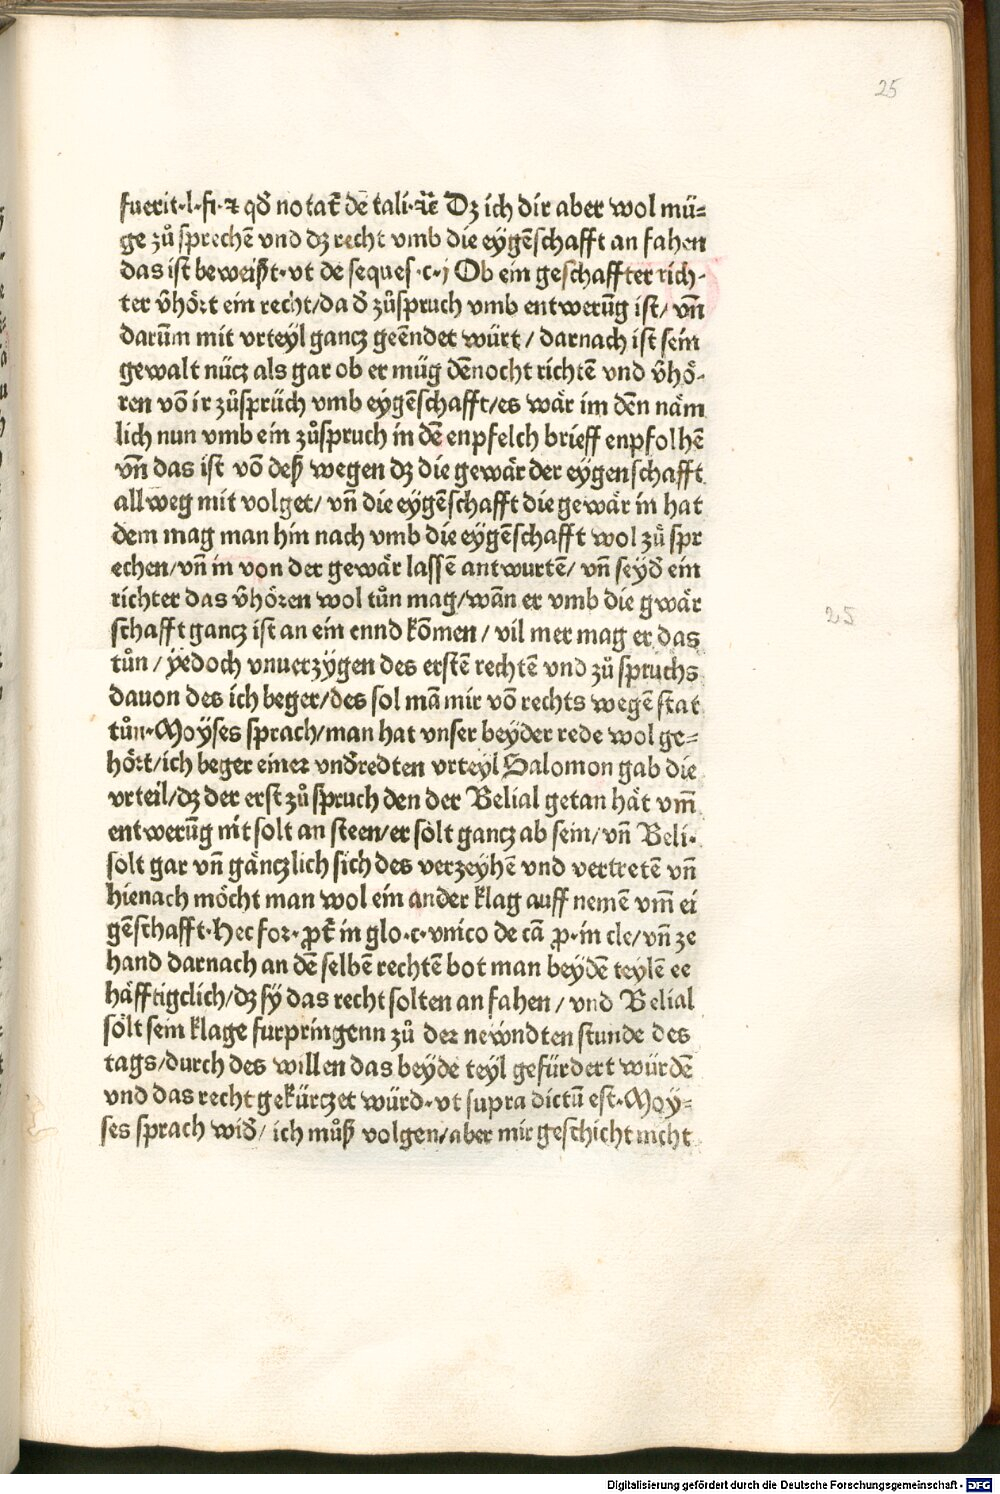 25
fuerit·l·fi·⁊ qð notat̄ dē tali·⁊c̄ Dz ich dir aber wol mü⸗
ge zů sprechē vnd dz recht vmb die eÿgēschafft an fahen
das ist beweißt·vt de seques·c·j Ob ein geschaffter rich-
ter v̄hört ein recht/da ð zůspruch vmb entwerūg ist/ vn̄
darūm mit vrteyl gancz geēndet würt / darnach ist sein
gewalt nücz als gar ob er müg dēnocht richtē vnd v̄hö-
ren vō ir zůsprüch vmb eÿgēschafft/es wär im dēn näm
lich nun vmb ein zůspruch in dē enpfelch brieff enpfolhē
vn̄ das ist vō deß wegen dz die gewär der eÿgenschafft
allweg mit volget/ vn̄ die eÿgēschafft die gewär in hat
dem mag man hin nach vmb die eÿgēschafft wol zů spr
echen/vn̄ in von der gewär lassē antwurtē/ vn̄ seyð ein
richter das v̄hören wol tůn mag/wān er vmb die gwär
schafft gancz ist an ein ennd kōmen / vil mer mag er das
tůn / ÿedoch vnuerzÿgen des erstē rechtē vnd zů spruchs
dauon des ich beger/des sol mā mir vō rechts wegē stat
tůn·Moÿses sprach/man hat vnser beÿder rede wol ge⸗
hört/ich beger einer vnðredten vrteyl Salomon gab die
vrteil/dz der erst zůspruch den der Belial getan hät vm̄
entwerūg nit solt an steen/er sölt gancz ab sein/vn̄ Beli·
sölt gar vn̄ gänczlich sich des verzeyhē vnd vertretē vn̄
hienach möcht man wol ein ander klag auff nemē vm̄ ei
gēschafft·Hec for·p̱t̄ in glo·c·vnico de cā p̱·in cle/vn̄ ze
hand darnach an dē selbē rechtē bot man beydē teylē ee
häfftigclich/dz sÿ das recht solten an fahen / vnd Belial
sölt sein klage furpringenn zů der newndten stunde des
tags/durch des willen das beyde teyl gefürdert würdē
vnd das recht gekürczet würd·vt supra dictū est·Moÿ⸗
ses sprach wið/ ich můß volgen/aber mir geschicht nicht
25
Digitalisierung gefördert durch die Deutsche Forschungsgemeinschaft - DFG